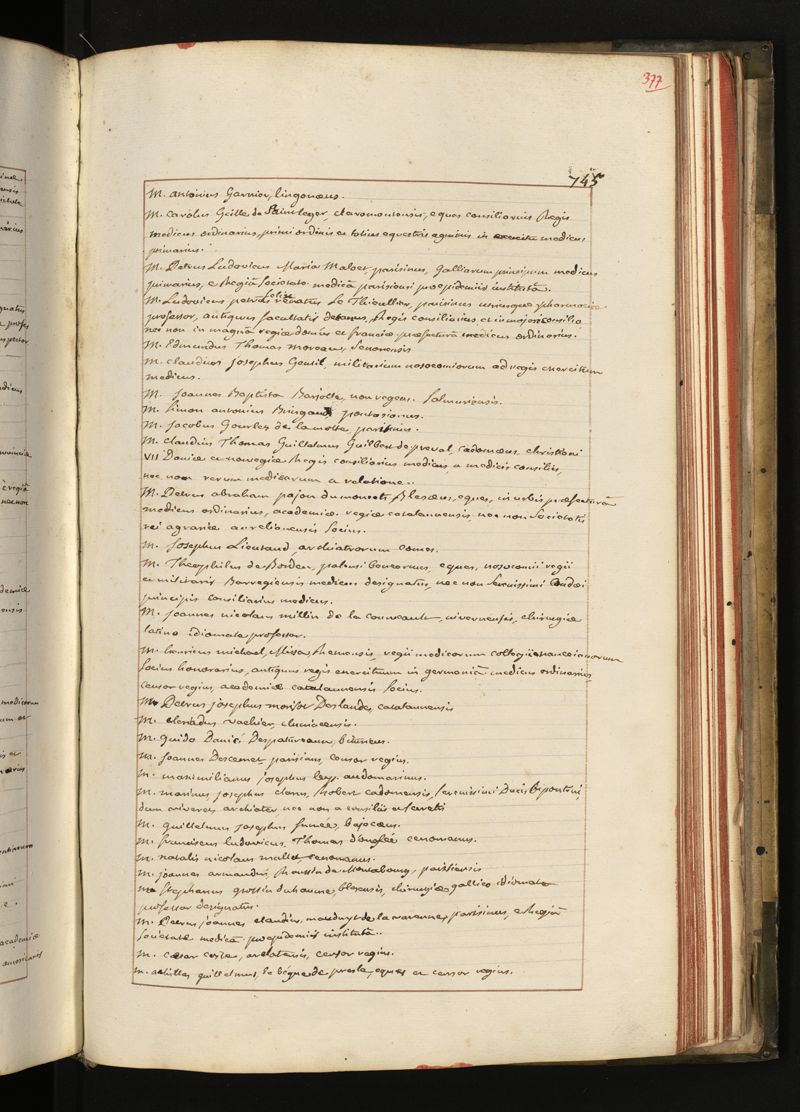 377
745
M. antonius Garnier, lingonæus.
M. carolus Geille de Saint leger, claromontensis, eques consiliarius Regis
medicus ordinarius, primi ordinis en totius equestris agminis in exercitu medicus
primarius.
M. Petrus Ludovicus Maria Maloet, parisinus, Galliarum principum medicus
primarius, e Regiâ Societate medicâ parisiensi pro epidemiis institutâ
M. Ludovicus petrus renatus Le Thieullier, parisinus utriusque pharmaciæ
professor, antiquus facultatis decanus, Regis consiliarius, et in majori consilio
nec non in magnâ regiæ domûs et franciæ præfecturâ medicus ordinarius.
M. Edmundus Thomas moreau, Senonensis
M. claudius josephus Gentil, militarium nosocomiorum ad regis exercitum
medicus.
M. joannes Baptista Barjolle, non regens. Salmuriensis.
M. Simon antonius Bringaud pontasianus.
M. jacobus Gourlez de la motte parisinus.
M. claudius Thomas Guillelmus Guilbert de preval, cadomæus, christiani
VII Daniæ en norvegiæ Regis consiliarius medicus a medicis consiliis,
nec non rerum medicarum a relatione.
M. Petrus abraham pajon du moncets, Blesæus, eques, in urbis præfecturâ
medicus ordinarius, academiæ regiæ catalaunensis, nec non Societatis
rei agrariæ aurelianensis Socius.
M. josephus Lieutaud, archiatrorum comes.
M. Theophilus de Bordeu, palensi bencarnus, eques, nosocomii regii
en militaris Barregiensis medicus designatus, nec non Serenissimi Condæi
principis consiliarius medicus.
M. joannes nicolaus millin de la courvault, nivernensis, chirurgiæ
latino idiomate professor.
M. henricus michael, Missa Remensis, regii medicorum collegii nanceianorum
Socius honorarius, antiquus regis exercituum in germaniâ medicus ordinarius
censor regius, academiæ catalaunensis Socius.
M. Petrus josephus morisot Deslandes, catalaunensis
M. elzeadus vachier, cluniacensis.
M. guido Daniel Despatureaux, bituricus.
M. joannes Descemet parisinus, censor regius.
M. maximilianus josephus leys, audomarinus.
M. marinus josephus clarus, Robert cadomensis, Serenissimi Ducis bipontini,
dum viveret, archiater, nec non a consiliis en secretis
M. guillelmus josephus funée, bajocæus.
M. franciscus ludovicus, Thomas d'onglée cenomanus.
M. natalis nicolaus mallet Senonanus.
M. joannes armandus, Roussin de Montabourg, parisiensis
M. Stephanus grossin duhaume blesensis, chirurgiæ gallico idiomate
professor designatus.
M. Petrus joannes claudius, mauduyt de la varenne parisinus, e Regiâ
societate medicâ pro epidemiis institutâ.
M. cæsar coste, arelatensis, censor regius.
M. achilles guillelmus, le bégue de presle, eques en censor regius.